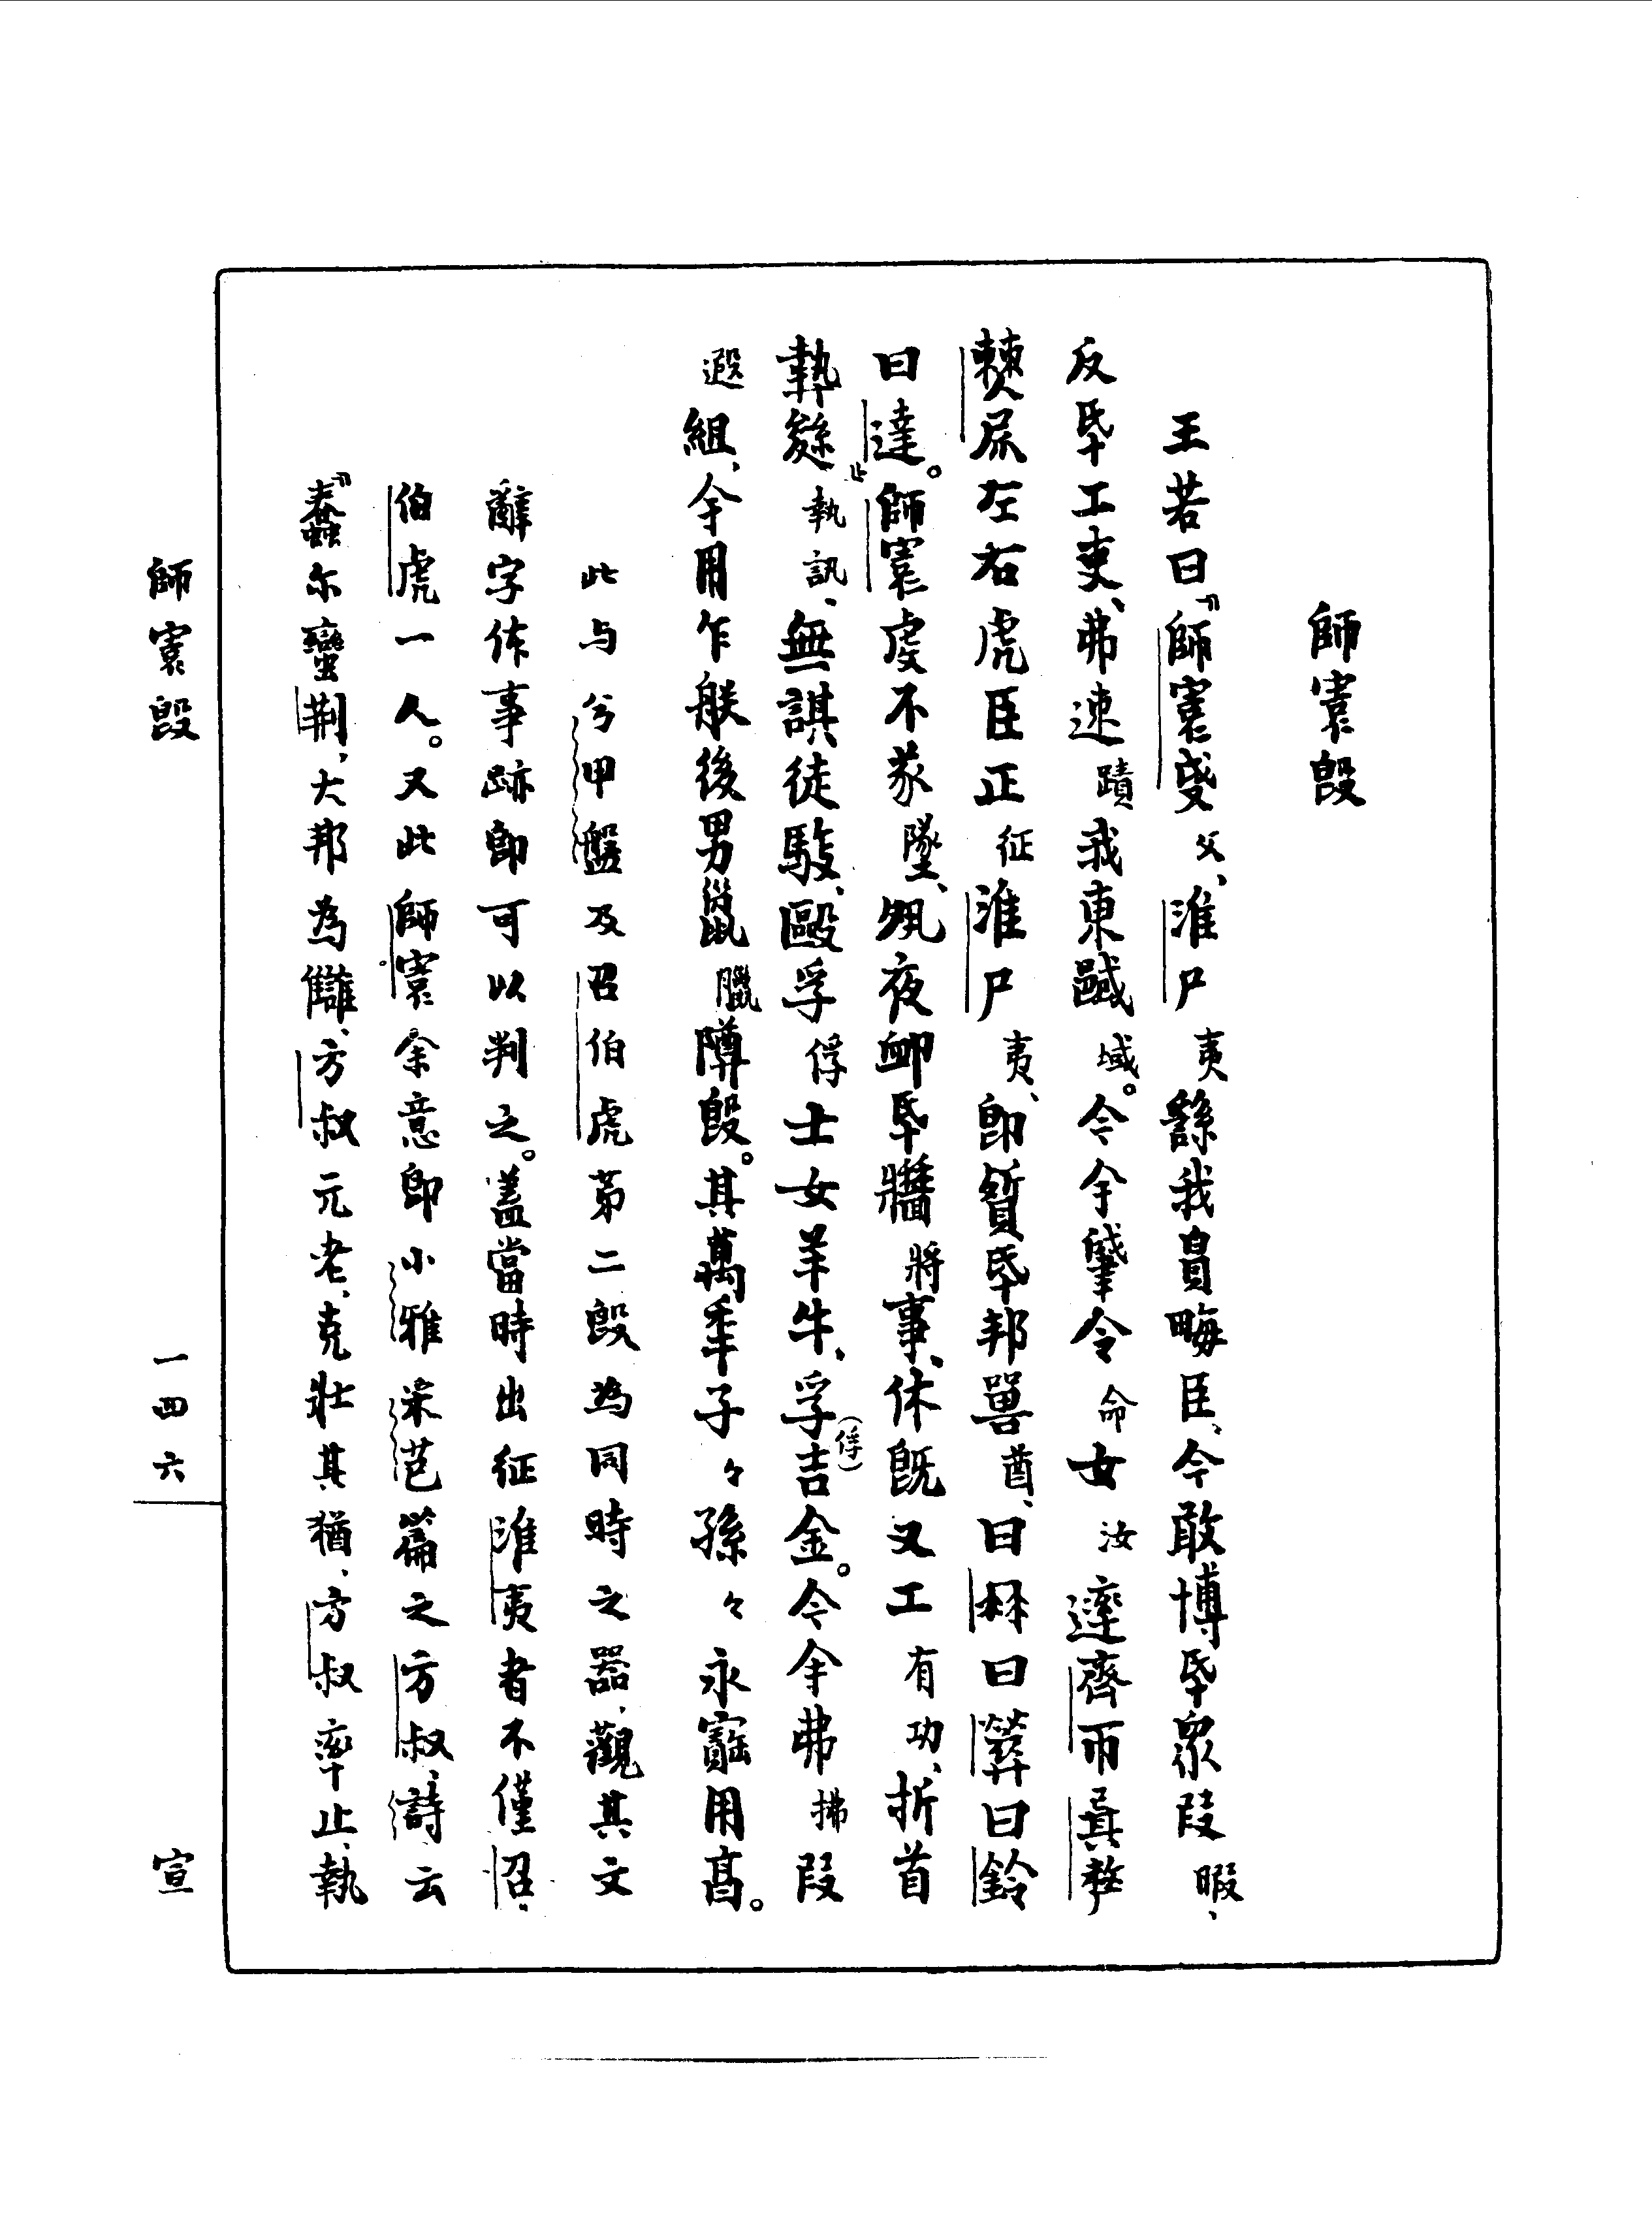 師㝨𣪘
王若曰『師㝨𠭯父、淮尸夷繇我𧵩畮臣、今敢博氒眾叚暇、
反氒工吏、弗速蹟我東𢧢域。今余肇令命女汝達齊帀㠱𠩺
僰㞑左右虎臣正征淮尸夷、即質氒邦嘼酋、曰冉曰𦺇曰鈴
曰達。』師㝨虔不㒸墜、夙夜卹氒牆將事、休既又工有功、折首
執𦅫執訊、無諆徒馭、毆孚俘士女羊牛、孚(俘)吉金。今余弗拂叚
遐組、余用乍朕後男巤臘䵼𣪘。其萬年子々孫々永寶用享。
此与兮甲盤及召伯虎第二𣪘為同時之器、觀其文
辭字体事跡即可以判之。蓋當時出征淮夷者不僅召
伯虎一人。又此師㝨余意即小雅采芑篇之方叔、詩云
『蠢尔蠻荆、大邦為讎、方叔元老、克壯其猶、方叔率止、執
師㝨𣪘
一四六
宣